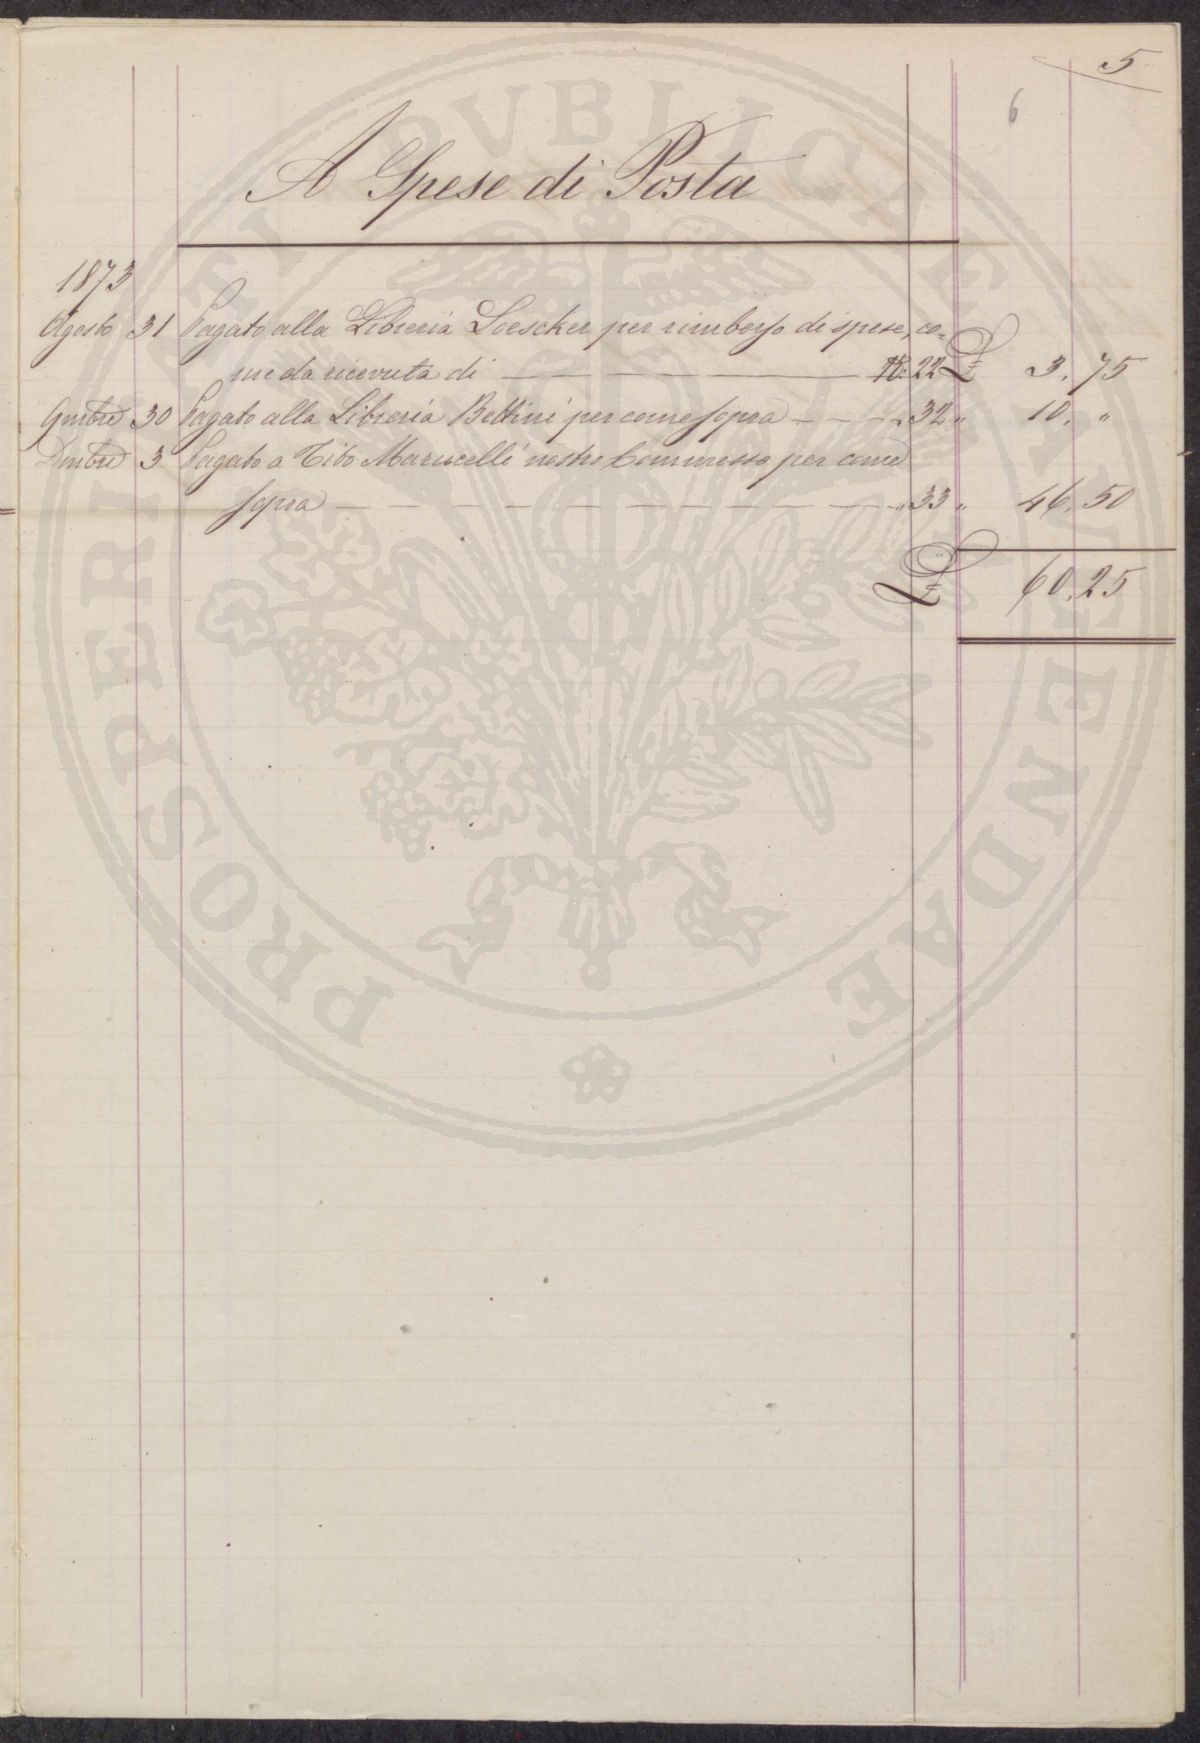 5
6
A Spese di Posta
1873
Agosto 31 Pagato alla Libreria Loescher per rimborso di spese, co=
me da ricevuta di — N: 22 £ 3. 75
9mbre 30 Pagato alla Libreria Bettini per come sopra — " 32 " 10. "
Dmbre 3 Pagato a Tito Marucelli nostro Commesso per come
sopra — " 33 " 46. 50
£ 60. 25
PROSPERITATI PVBLICAE AVGENDAE